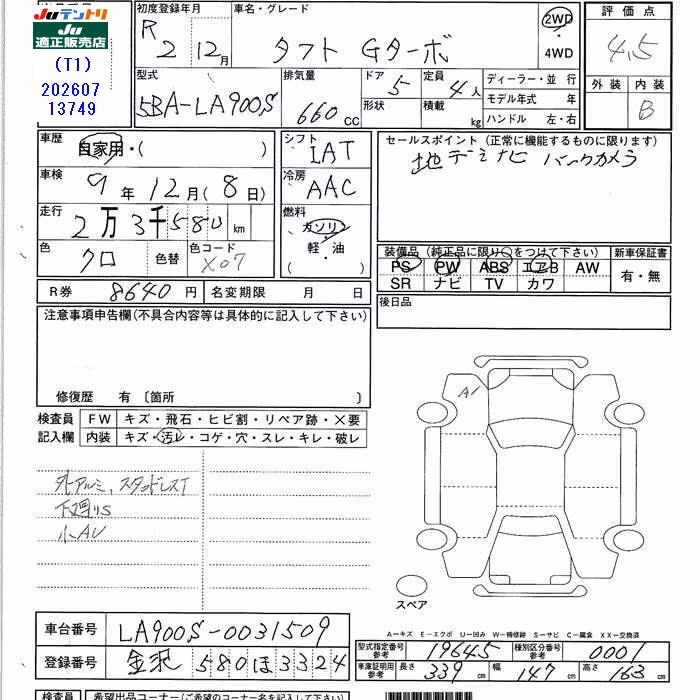 JUテントリ
JU
適正販売店
(T1)
202607
13749
初度登録年月
R 2 12月
車名・グレード
タフト Gターボ
2WD
・
4WD
評価点
4.5
外装 内装
B
型式
5BA-LA900S
排気量
660 CC
ドア 5
形状
定員 4人
積載 kg
ディーラー・並 行
モデル年式 年
ハンドル 左・右
車歴
自家用・( )
車検
9年 12月(8日)
走行
2万3千580km
色
クロ
色替
色コード
X07
シフト
IAT
冷房
AAC
燃料
ガソリン
軽・油
( )
セールスポイント (正常に機能するものに限ります)
地デジナビ バックカメラ
装備品 (純正品に限り○をつけて下さい)
PS PW ABS エアB AW
SR ナビ TV カワ
新車保証書
有・無
R券 8640円 名変期限 月 日
後日品
注意事項申告欄(不具合内容等は具体的に記入して下さい)
修復歴 有 〔箇所 〕
検査員
記入欄
FW キズ・飛石・ヒビ割・リペア跡・×要
内装 キズ・汚レ・コゲ・穴・スレ・キレ・破レ
外アルミ、スタッドレスT
下廻りS
小AU
A1
スペア
A―キズ E―エクボ U―凹み W―補修跡 S―サビ C―腐食 XX―交換済
車台番号 LA900S-0031509
登録番号 金沢 580ほ3324
型式指定番号
参考
19645
種別区分番号
参考
0001
車庫証明用
参考
長さ 339cm 幅 147cm 高さ 163cm
検査員 希望出品コーナー(ご希望のコーナー名を記入して下さい)